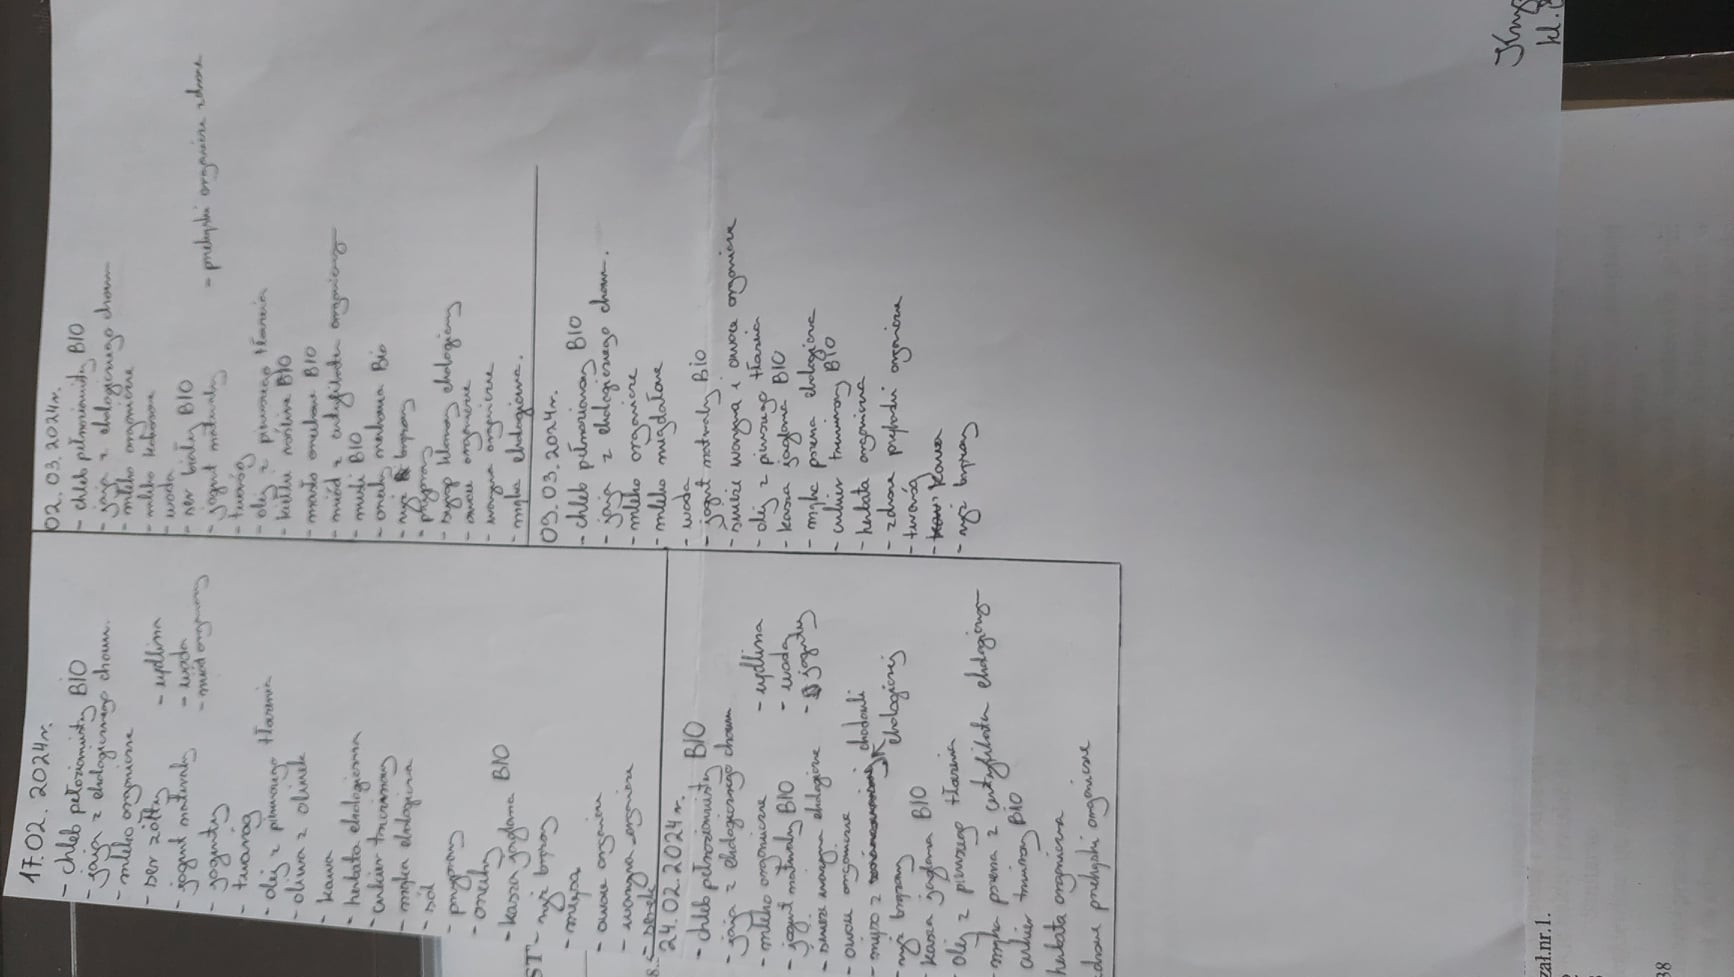 17.02.2024r.
- chleb pełnoziarnisty BIO
- jaja z ekologicznego chowu.
- mleko organiczne
- ser żółty
- jogurt naturalny
- jogurty
- twaróg
- olej z pierwszego tłoczenia
- oliwa z oliwek
- kawa
- herbata ekologiczna
- cukier trzcinowy
- mąka ekologiczna
- sól
- przyprawy
- orzechy
- kasza jaglana BIO
- ryż brązowy
- mięso
- owoce organiczne
- warzywa organiczne
- serek
- wędlina
- woda
- miód organiczny
24.02.2024r.
- chleb pełnoziarnisty BIO
- jaja z ekologicznego chowu
- mleko organiczne
- jogurt naturalny BIO
- świeże warzywa ekologiczne
- owoce organiczne
- mięso z hodowli ekologicznej
- ryż brązowy
- kasza jaglana BIO
- olej z pierwszego tłoczenia
- mąka pszenna z certyfikatem ekologicznym
cukier trzcinowy BIO
herbata organiczna
zdrowe przekąski organiczne
- wędlina
- woda
- jogurty
02.03.2024r.
- chleb pełnoziarnisty BIO
- jaja z ekologicznego chowu
- mleko organiczne
- mleko kokosowe
- woda
- ser biały BIO
- jogurt naturalny
- twaróg
- olej z pierwszego tłoczenia
- kiełki roślinne BIO
- masło orzechowe BIO
- miód z certyfikatem organicznym
- musli BIO
- orzechy nerkowca Bio
- ryż brązowy
- przyprawy
- syrop klonowy ekologiczny
- owoce organiczne
- warzywa organiczne
- mąka ekologiczna.
- przekąski organiczne zdrowe
09.03.2024r.
- chleb pełnoziarnisty BIO
- jaja z ekologicznego chowu.
- mleko organiczne
- mleko migdałowe
- woda
- jogurt naturalny Bio
- świeże warzywa i owoce organiczne
- olej z pierwszego tłoczenia
- kasza jaglana BIO
- mąka pszenna ekologiczna
- cukier trzcinowy BIO
- herbata organiczna
- zdrowe przekąski organiczne
- twaróg
- kawa
- ryż brązowy
kl.
ST
zał.nr.1.
38